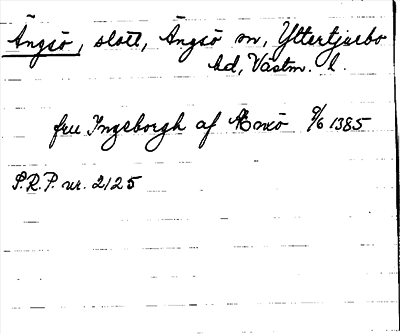 Ängsö, slott, Ängsö sn, Yttertjurbo
hd, Västm. l.
fru Ingeborgh af Ænxö 9/6 1385
P.R.P. nr. 2125